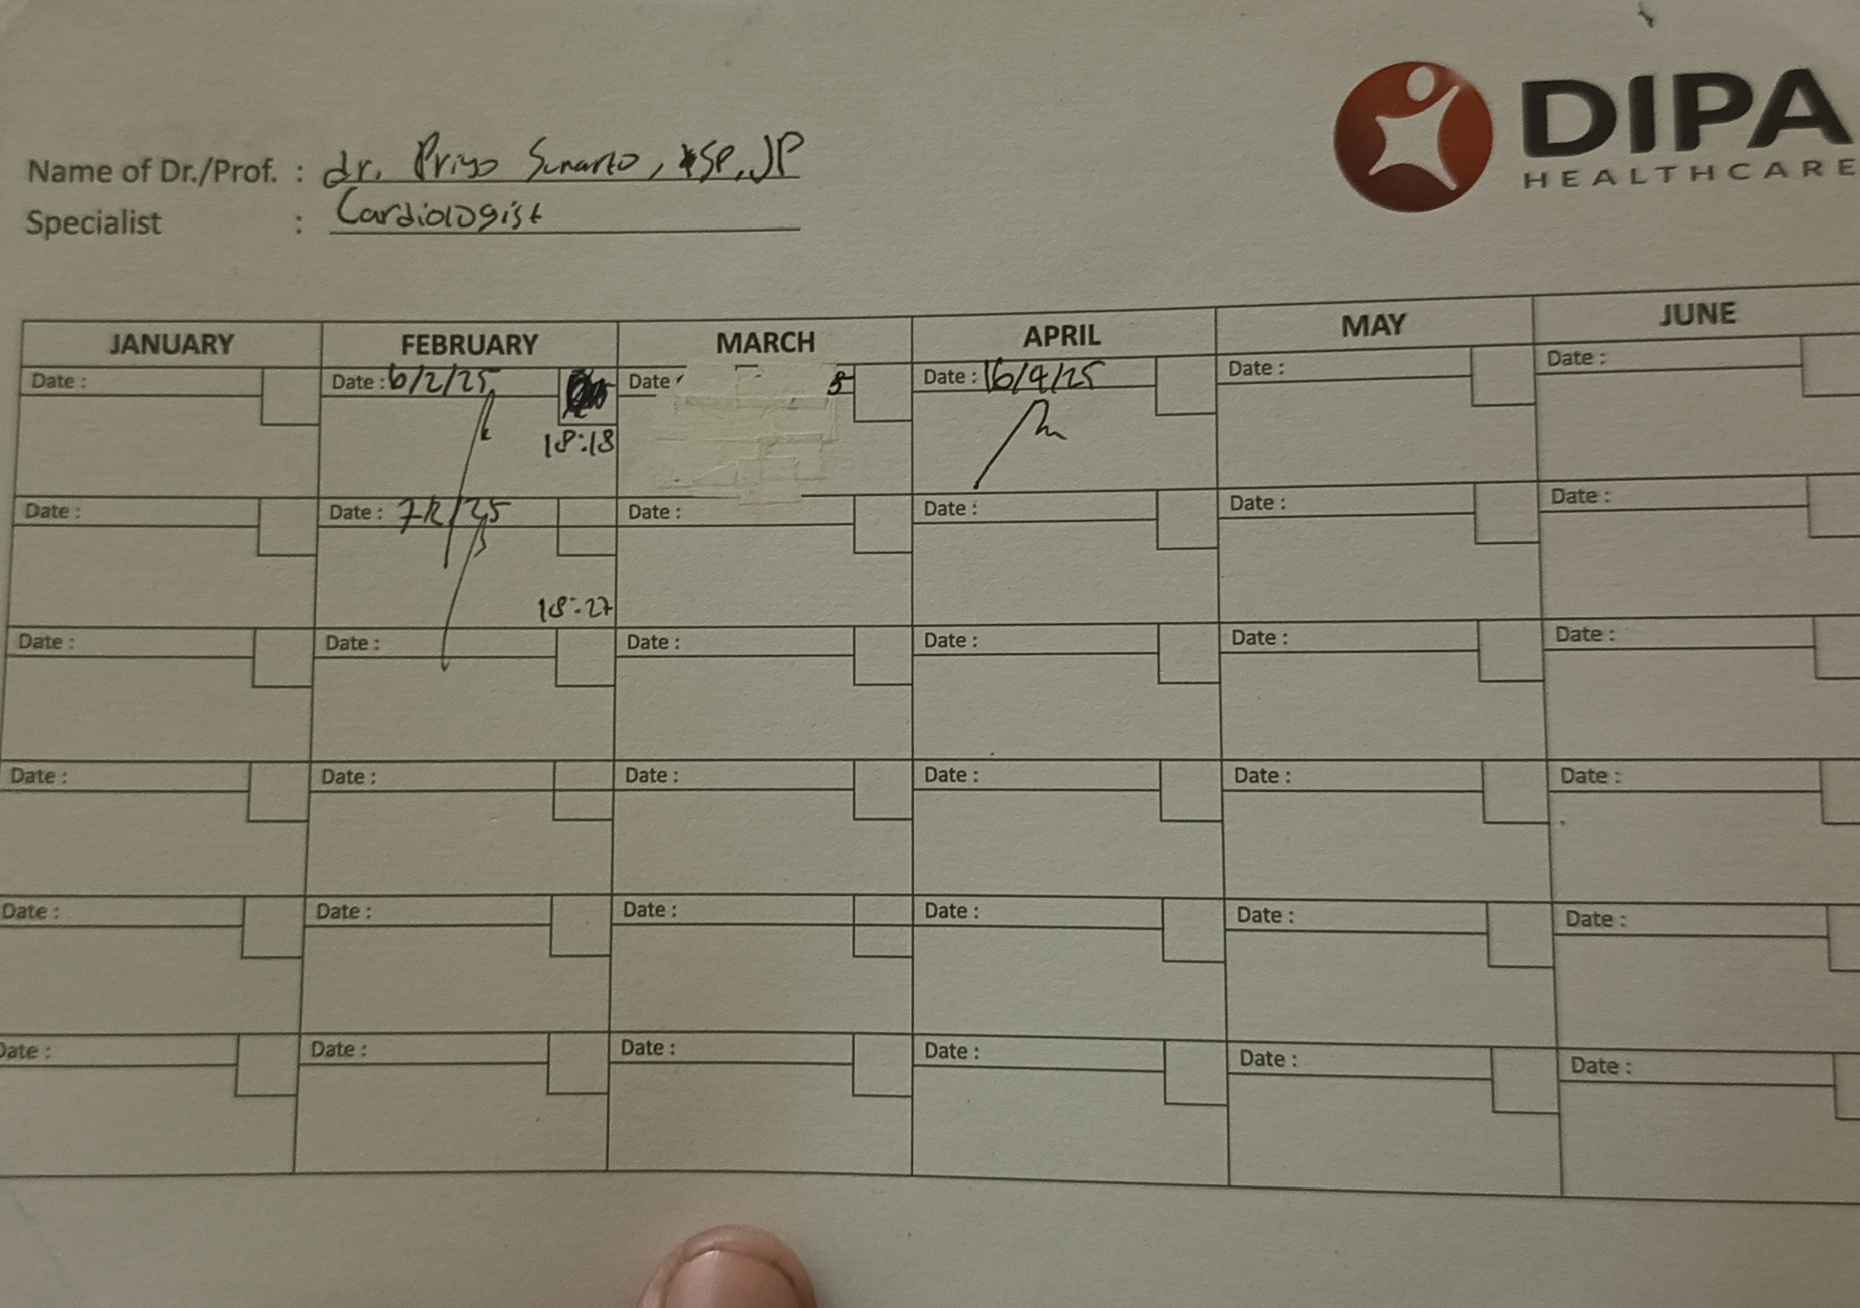 DIPA
HEALTHCARE
Name of Dr./Prof. : dr. Priyo Sunarto, SP.JP
Specialist : Cardiologist
JANUARY FEBRUARY MARCH APRIL MAY JUNE
Date : Date : 6/2/25 Date 5 Date : 16/4/25 Date : Date :
18:18
Date : Date : 7/2/25 Date : Date : Date : Date :
18:27
Date : Date : Date : Date : Date : Date :
Date : Date : Date : Date : Date : Date :
Date : Date : Date : Date : Date : Date :
Date : Date : Date : Date : Date : Date :